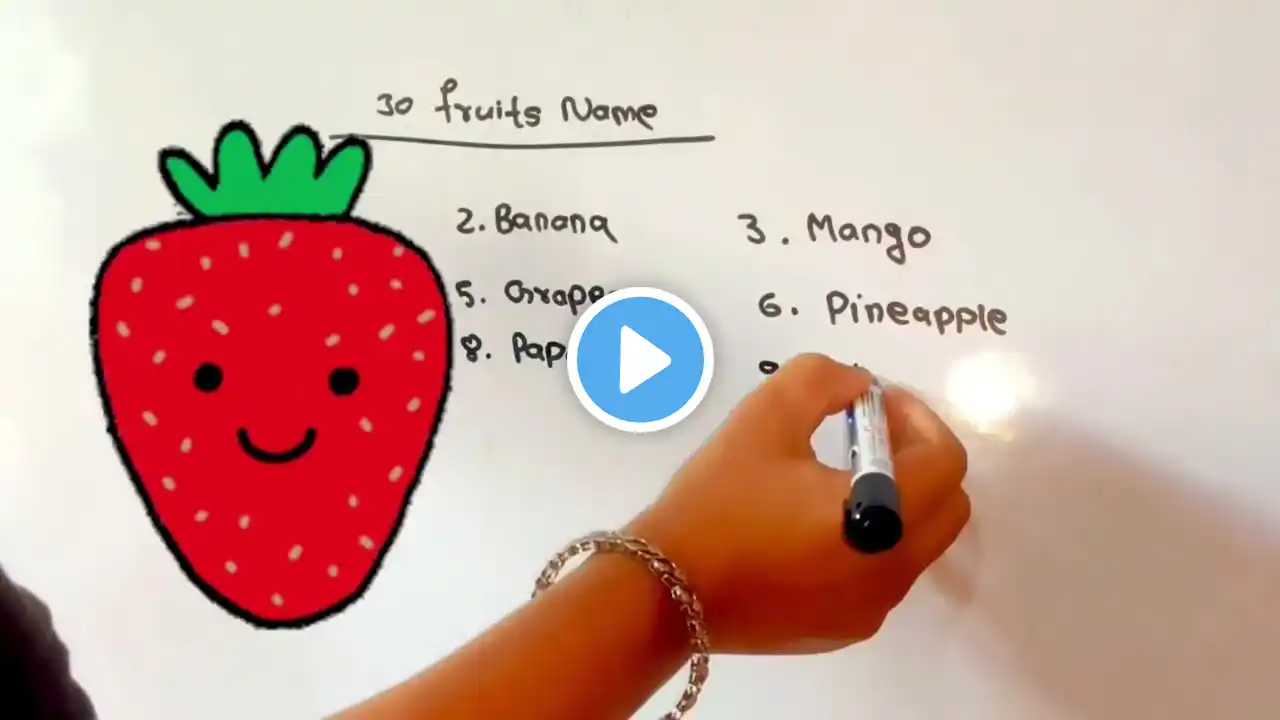 30 fruits Name
2. Banana 3. Mango
5. 6. Pineapple
8.